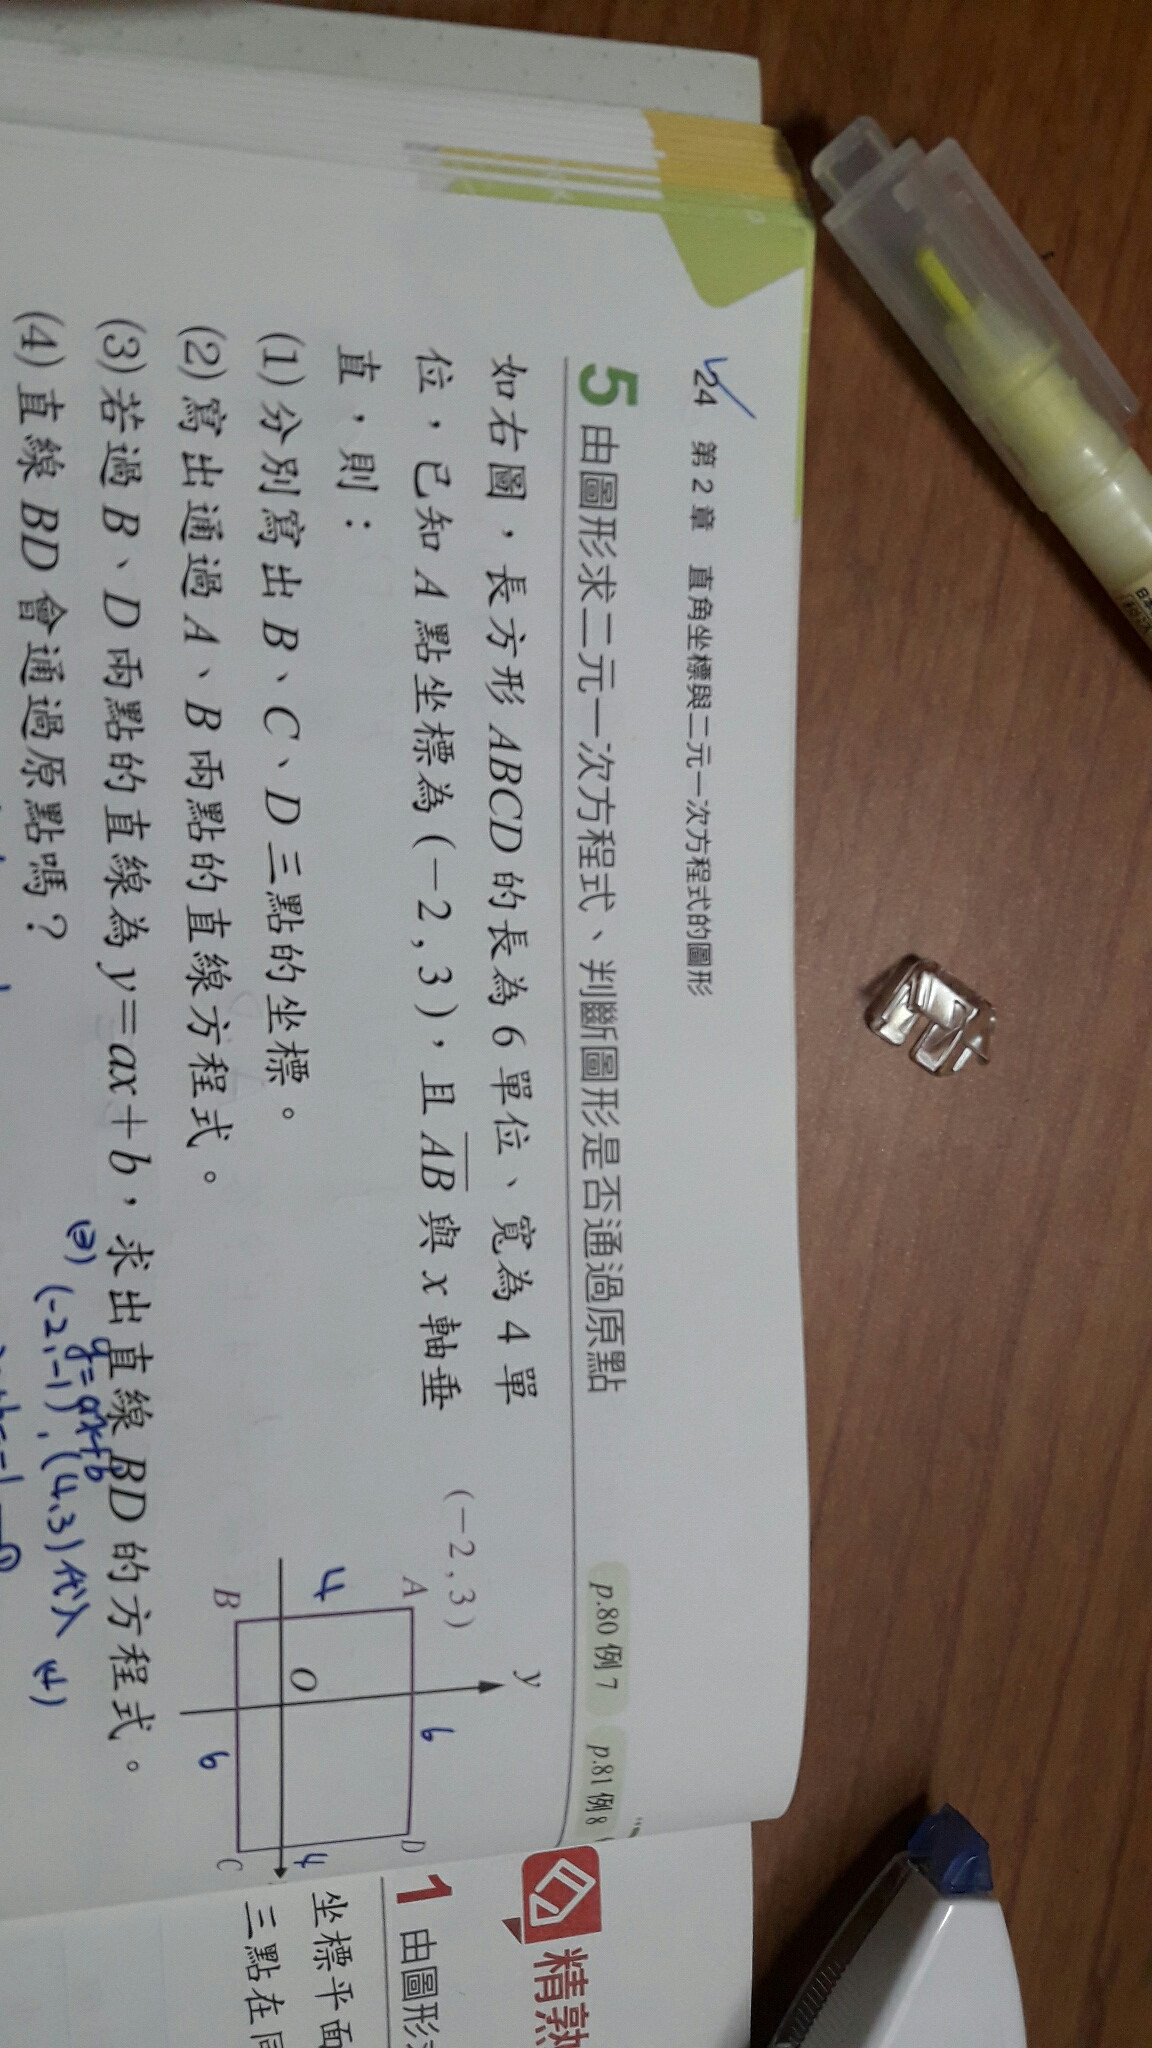 24 第2章 直角坐標與二元一次方程式的圖形
5 由圖形求二元一次方程式、判斷圖形是否通過原點
p.80例7 p.81例8
如右圖，長方形ABCD的長為6單位、寬為4單
位，已知A點坐標為(-2,3)，且AB與x軸垂
直，則：
(1)分別寫出B、C、D三點的坐標。
(2)寫出通過A、B兩點的直線方程式。
(3)若過B、D兩點的直線為y=ax+b，求出直線BD的方程式。
(4)直線BD會通過原點嗎？
y
(-2,3)
A
6
D
4
O
4
B
6
C
y=ax+b
(-2,-1),(4,3)代入
(4)
精熟
1 由圖形
坐標平面
三點在同